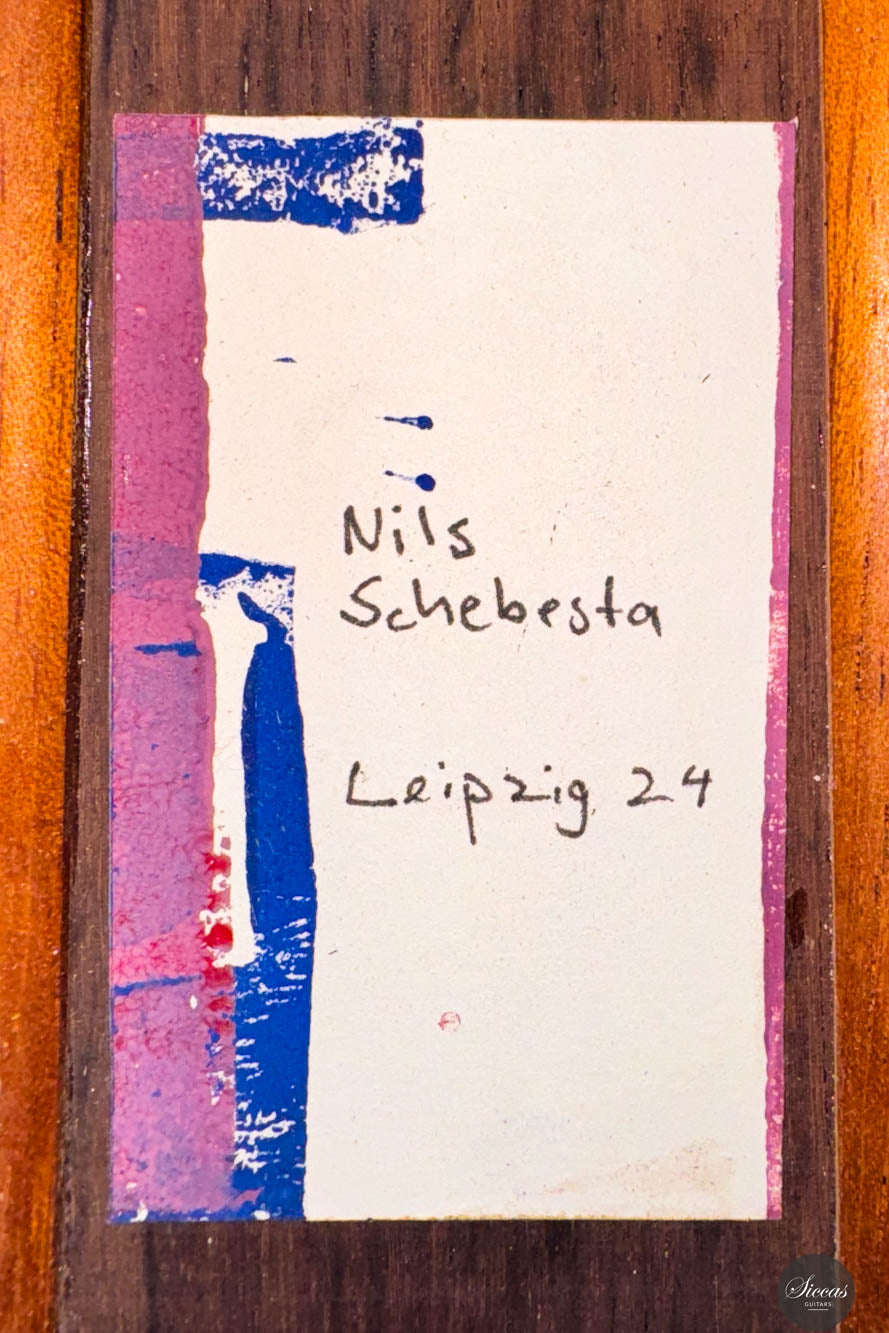 Nils
Schebesta
Leipzig 24
Siccas
GUITARS